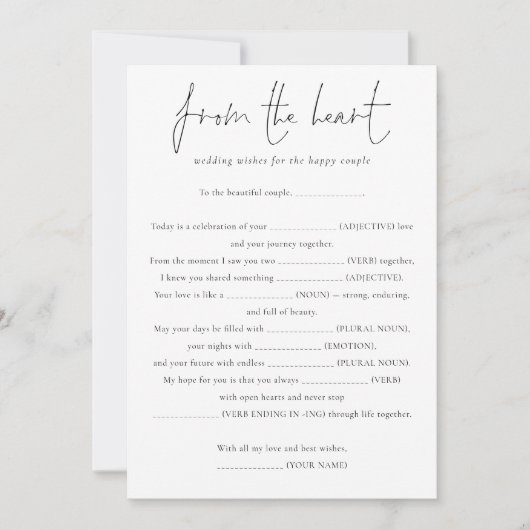 from the heart
wedding wishes for the happy couple
To the beautiful couple, _____________.
Today is a celebration of your _____________ (ADJECTIVE) love
and your journey together.
From the moment I saw you two _____________ (VERB) together,
I knew you shared something _____________ (ADJECTIVE).
Your love is like a _____________ (NOUN) — strong, enduring,
and full of beauty.
May your days be filled with _____________ (PLURAL NOUN),
your nights with _____________ (EMOTION),
and your future with endless _____________ (PLURAL NOUN).
My hope for you is that you always _____________ (VERB)
with open hearts and never stop
_____________ (VERB ENDING IN -ING) through life together.
With all my love and best wishes,
_____________ (YOUR NAME)